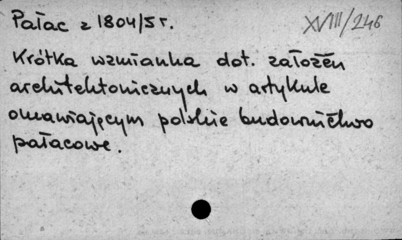 Pałac z 1804/5 r.
XVIII/246
Krótka wzmianka dot. założeń
architektonicznych w artykule
omawiającym polskie budownictwo
pałacowe.